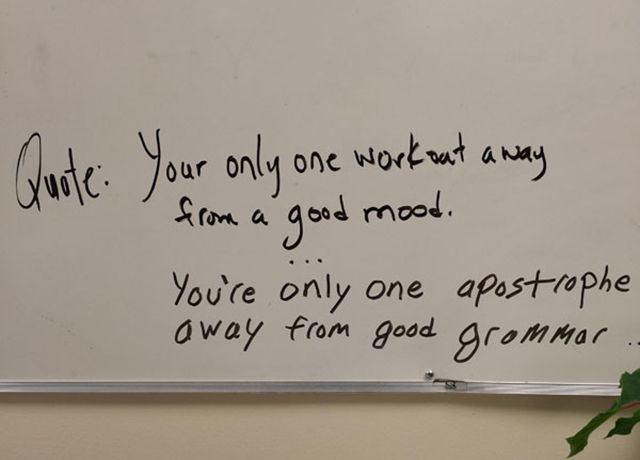 Quote: Your only one workout away
from a good mood.
...
You're only one apostrophe
away from good grammar ..